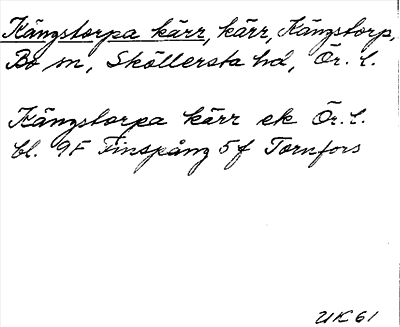 Kängstorpa kärr, kärr, Kängstorp,
Bo sn, Sköllersta hd, Ör. l.
Kängstorpa kärr ek Ör. l.
bl. 9F Finspång 5f Tornfors
UK 61